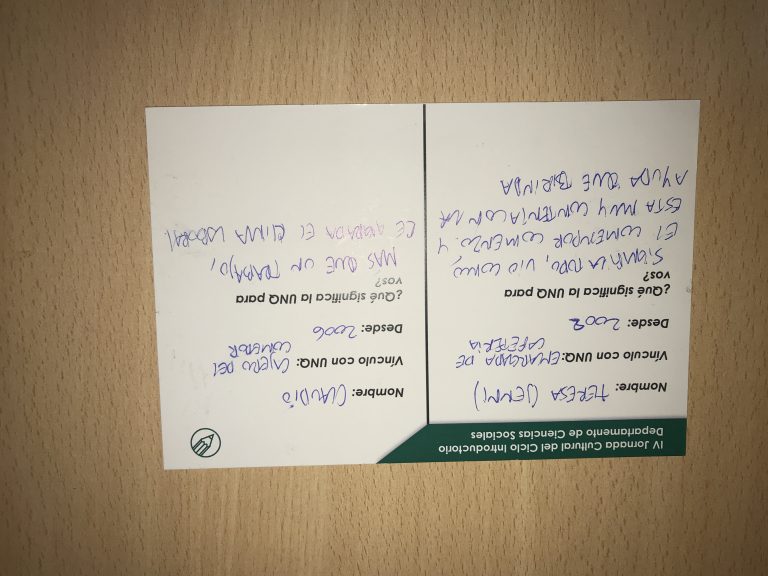 IV Jornada Cultural del Ciclo Introductorio
Departamento de Ciencias Sociales
Nombre: TERESA (JENNI)
Vínculo con UNQ: ENCARGADA DE
CAFETERIA
Desde: 2002
¿Qué significa la UNQ para
vos?
SIGNIFICA TODO, VIO COMO
EL COMEDOR COMENZO Y
ESTA MUY CONTENTA CON LA
AYUDA QUE BRINDA
Nombre: CLAUDIO
Vínculo con UNQ: CAJERO DEL
COMEDOR
Desde: 2006
¿Qué significa la UNQ para
vos?
MAS QUE UN TRABAJO,
LE AGRADA EL CLIMA LABORAL